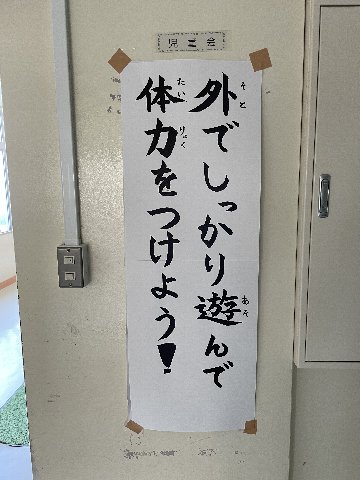 児童会
外でしっかり遊んで
体力をつけよう!
そと
あそ
たい
りょく